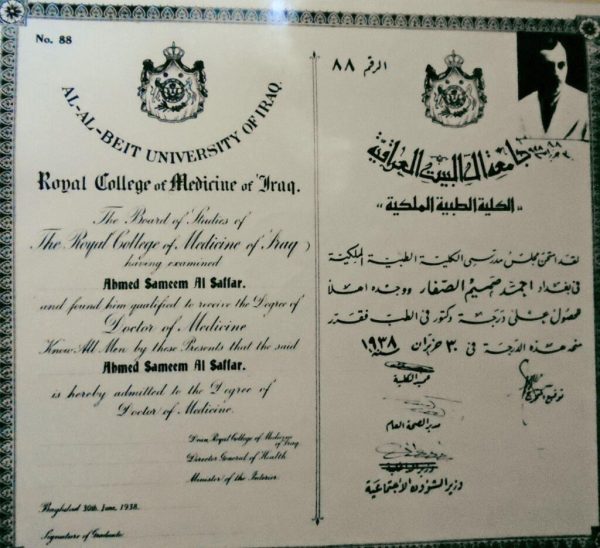 No. 88
AL-AL-BEIT UNIVERSITY OF IRAQ.
Royal College of Medicine of Iraq.
The Board of Studies of
The Royal College of Medicine of Iraq
having examined
Ahmed Sameem Al Saffar.
and found him qualified to receive the Degree of
Doctor of Medicine
Know All Men by these Presents that the said
Ahmed Sameem Al Saffar.
is hereby admitted to the Degree of
Doctor of Medicine.
Dean Royal College of Medicine of Iraq
Director General of Health
Minister of the Interior
Baghdad 30th. June, 1938.
Signature of Graduate
الرقم ٨٨
جامعة آل البيت العراقية
«الكلية الطبية الملكية»
لقد امتحن مجلس مدرسي الكلية الطبية الملكية
في بغداد احمد صميم الصفار ووجده اهلا
لحصول على درجة دكتور في الطب فقرر
منحه هذه الدرجة في ٣٠ حزيران ١٩٣٨
عميد الكلية
توقيع المتخرج
مدير الصحة العام
وزير الشؤون الاجتماعية